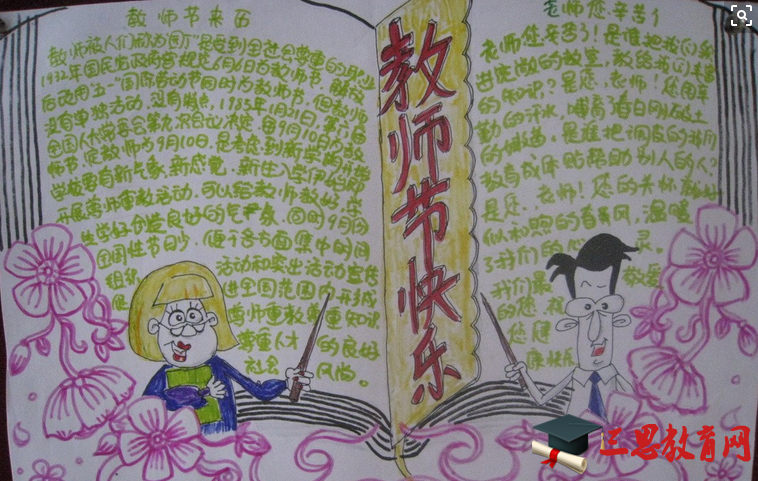 教师节来历
教师被人们称为园丁,是受到全社会尊重的职业
1932年国民党政府曾规定6月6日为教师节,解放
后改用"五一"国际劳动节同时为教师节,但教师
没有单独活动,没有特点。1985年1月21日,第六届
全国人大常委会第九次会议决定,每9月10日为教
师节。定教师为9月10日,是考虑到新学期开始
学校要有新气象,新感觉。新生入学伊始即
开展尊师重教活动,可以给教师教好、学
生学好创造良好的气氛。同时9月份
全国性节日少,便于各方面集中时间
组织活动和突出活动宣传
促进全国范围内形成
尊师重教、尊重知识、
尊重人才的良好
社会风尚。
教师节快乐
老师您辛苦了
老师您辛苦了!是谁把我们
进宽敞的教室,教给我们丰富
的知识?是您,老师!您用辛
勤的汗水,哺育了春日的
的嫩苗,是谁把调皮的我们
教育成库贴帮助别人的人?
是您,老师!您的关怀
似和煦的春风,温暖
了我们的心灵。
我们最敬爱
的您,祝
您健
康快乐
三思教育网